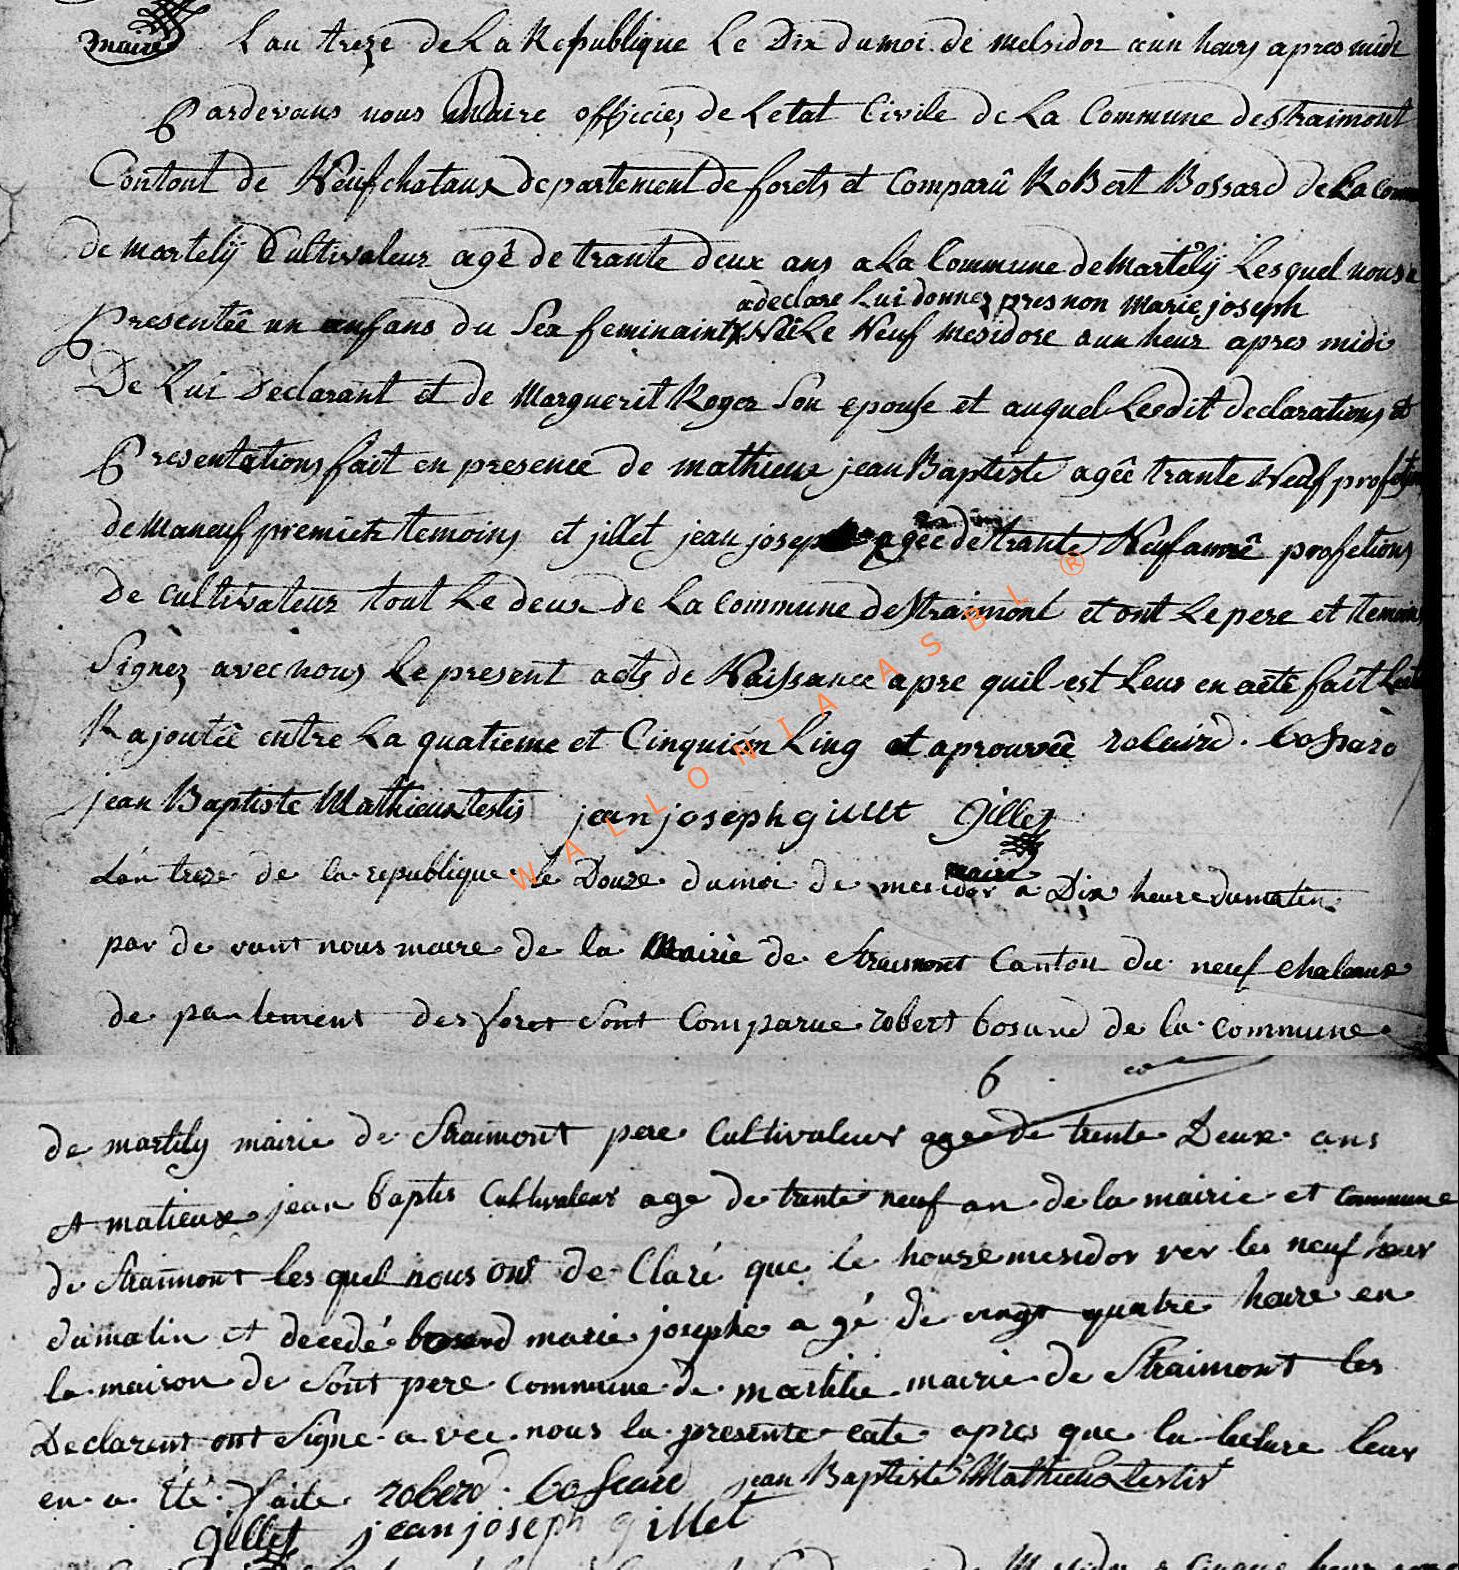 maire
L an treze de La Republique Le Dix du moi de Melsidor a un heurs apres midi
Pardevans nous Maire officies de Letat Civile de La Commune destraimont
Contont de Neufchataux departement de forets et Comparû RoBert Bossard de La Com
de Martelÿ Cultivateur agé de trante deux ans a La Commune de Martelÿ Lesquel nous
a declare Lui donnez presnon Marie joseph
Presentéê un anfans du Sex feminaint x Néê Le Neuf Mesidore a un heur apres midi
De Lui Declarant et de Marguerit Roger Son epouse et auquel Lesdit declarations et
Presentations fait en presence de Mathieux jean Baptiste agêe trante Neuf
de Maneuf premier temoins et jillet jean joseph agéê de trante Neuf anné profetions
de cultivateur tout Le deux de La Commune de Straimont et ont Le pere et temoins
Signez avec nous Le present acts de Naissance apre quil est Leus en aété fait
Rajoutéê entre La quatieme et Cinquiem Ling et aprouvéê bossard
jean Baptiste Mathieux testis jean joseph gillet Gillet
maire
L'an treze de la republique le Douze du moi de mesidor a Dix heure du matin
par de vant nous maire de la Mairie de Straimont Canton du neuf chateaux
de partement des foret Sont Comparue robert bosard de la commune
6
de martily mairie de Straimont pere Cultivateur age de trente Deux ans
et matieux jean baptis Cultivateur age de trante neuf an de la mairie et commune
de Straimont les quel nous ont de Claré que le honze mesidor ver les neuf heur
du matin et decedé bosard marie josephe a gé de vingt quatre heure en
la maison de Sont pere commune de martilie mairie de Straimont les
Declarent ont Signe a vec nous la presente cate apres que la lecture leur
en a été faite roberd bossard jean Baptiste Mathieux testis
Gillet jean joseph gillet